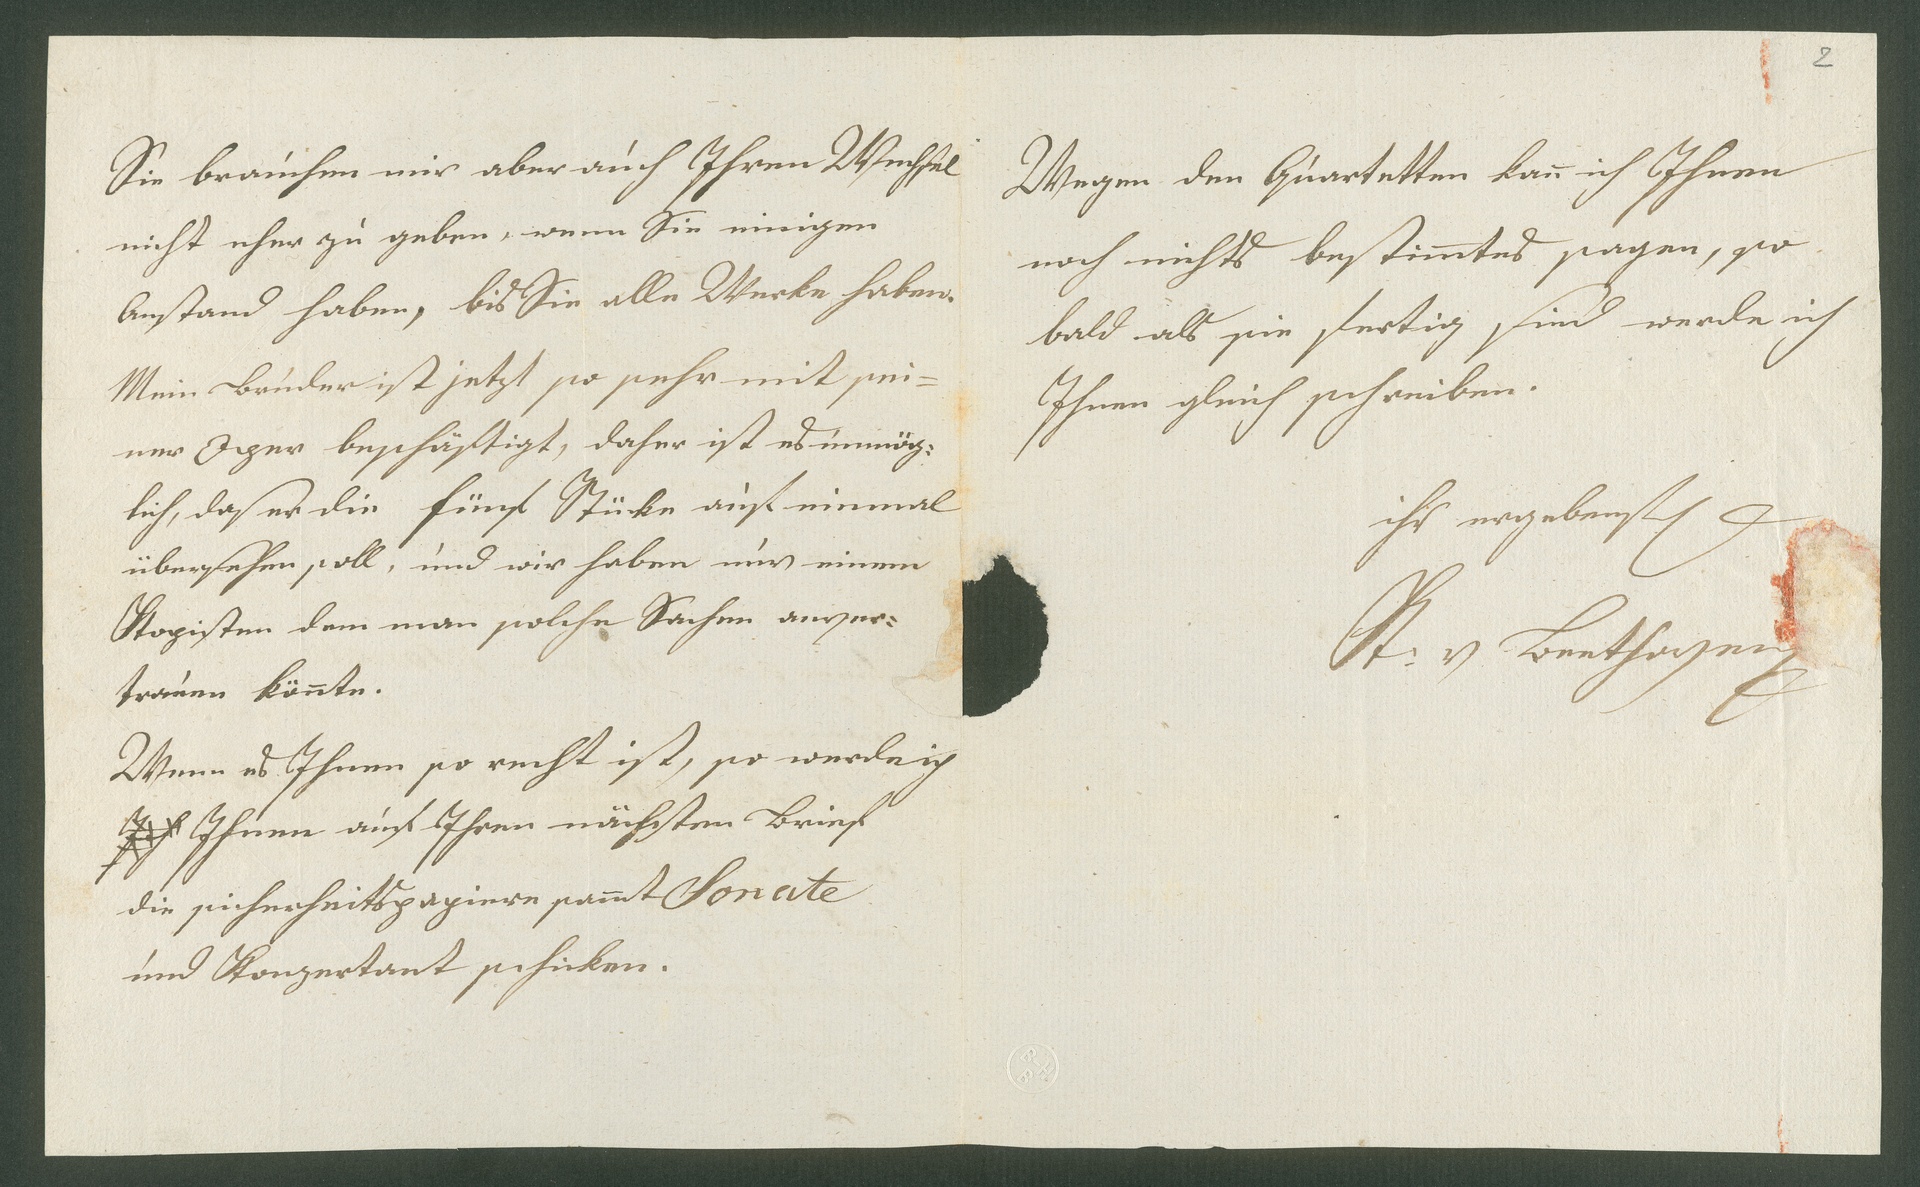 Sie brauchen mir aber auch Ihren Wechsel
nicht eher zu geben, wenn Sie einigen
Anstand haben, bis Sie alle Werke haben.
Mein Bruder ist jetzt so sehr mit sei=
ner Oper beschäftigt, daher ist es unmög=
lich, daß er die fünf Stücke auf einmal
übersehen soll, und wir haben nur einem
Kopisten dem man solche Sachen anver=
trauen kön̄te.
Wenn es Ihnen so recht ist, so werde ich
Ihnen auf Ihren nächsten Brief
die sicherheitspapiere sam̄t Sonate
und Konzertant schicken.
2
Wegen den Quartetten kan̄ ich Ihnen
noch nichts bestim̄tes sagen, so
bald als sie fertig sind werde ich
Ihnen gleich schreiben.
ihr ergebenst
K: v Beethoven